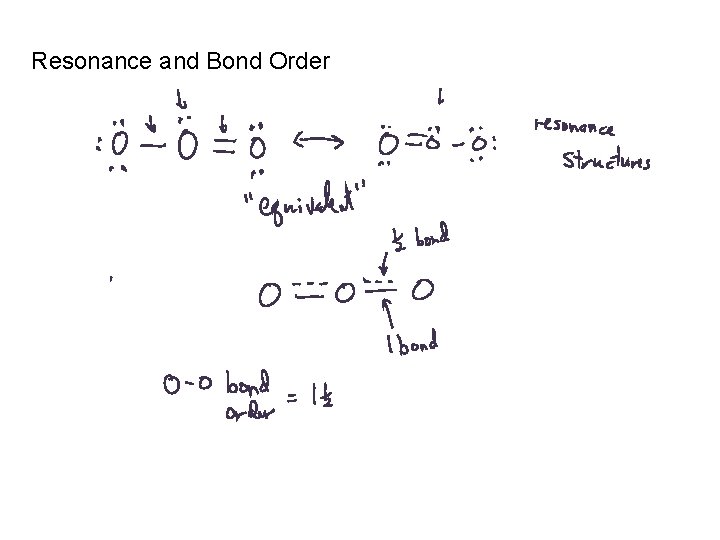 Resonance and Bond Order
:O – O = O ↔ O = O – O: resonance structures
"equivalent"
½ bond
O = O = O
1 bond
O-O bond order = 1½